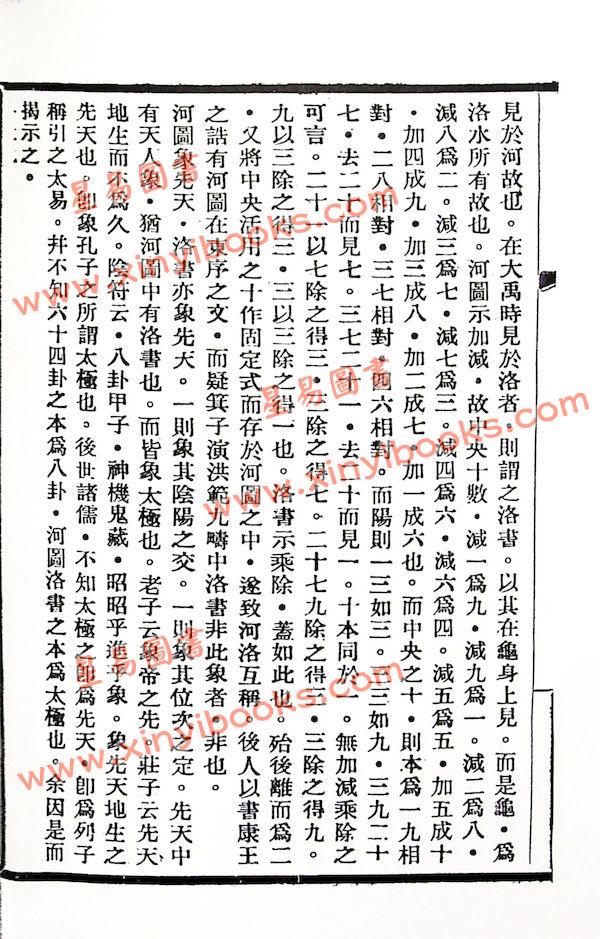 見於河故也。在大禹時見於洛者。則謂之洛書。以其在龜身上見。而是龜・爲
洛水所有故也。河圖示加減・故中央十數・減一爲九・減九爲一。減二爲八・
減八爲二。減三爲七・減七爲三。減四爲六・減六爲四。減五爲五・加五成十
・加四成九・加三成八・加二成七・加一成六也。而中央之十・則本爲一九相
對・二八相對・三七相對・四六相對。而陽則一三如三。三三如九・三九二十
七・去二十而見七。三七二十一・去二十而見一。十本同於一。無加減乘除之
可言。二十一以七除之得三・三除之得七。二十七九除之得三・三除之得九。
九以三除之得三・三以三除之得一也。洛書示乘除・蓋如此也。殆後離而爲二
・又將中央活用之十作固定式而存於河圖之中・遂致河洛互稱。後人以書康王
之誥有河圖在東序之文・而疑箕子演洪範九疇中洛書非此象者・非也。
河圖象先天・洛書亦象先天。一則象其陰陽之交。一則象其位次之定。先天中
有天人象・猶河圖中有洛書也。而皆象太極也。老子云象帝之先。莊子云先天
地生而不爲久。陰符云・八卦甲子・神機鬼藏・昭昭乎進乎象。象先天地生之
先天也。卽象孔子之所謂太極也。後世諸儒・不知太極之卽爲先天・卽爲列子
稱引之太易。幷不知六十四卦之本爲八卦・河圖洛書之本爲太極也。余因是而
揭示之。
星易圖書
www.xinyibooks.com
星易圖書
www.xinyibooks.com
星易圖書
www.xinyibooks.com